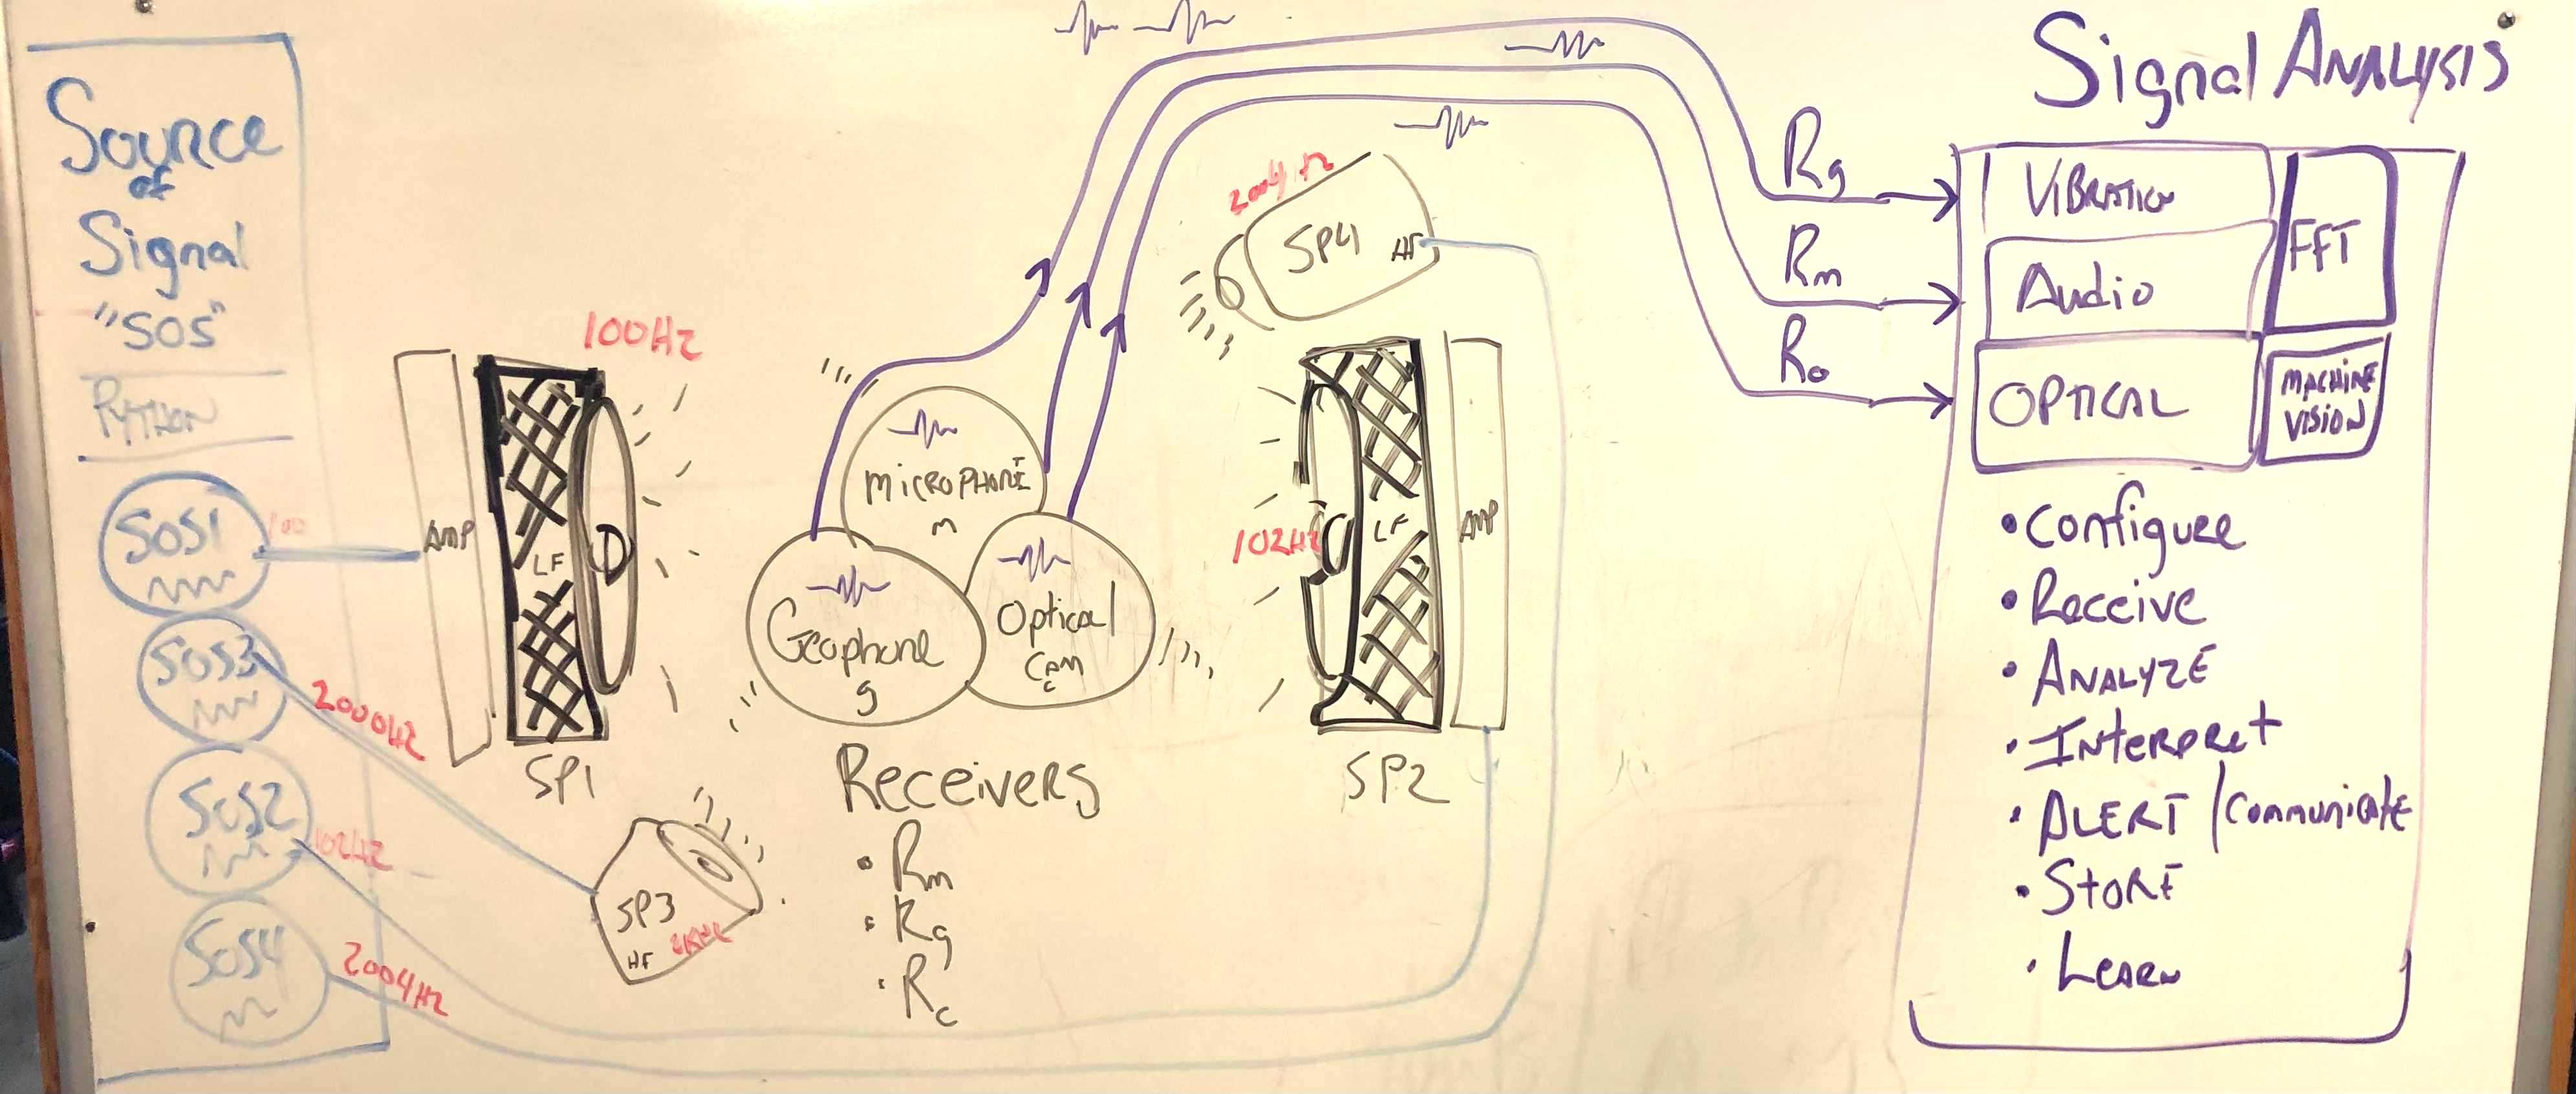 Source
of
Signal
"SOS"
PYTHON
SOS1
100
SOS3
2000Hz
SOS2
102Hz
SOS4
2004Hz
AMP
LF
100Hz
SP1
SP3
HF
2KHz
microphone
m
Geophone
g
Optical
Cam
c
Receivers
• Rm
• Rg
• Rc
2004Hz
SP4
HF
102Hz
LF
AMP
SP2
Rg
Rm
Ro
Signal ANALYSIS
VIBRATION
Audio
OPTICAL
FFT
MACHINE
VISION
• Configure
• Receive
• ANALYZE
• INterpret
• ALERT / Communicate
• StORE
• LEARN